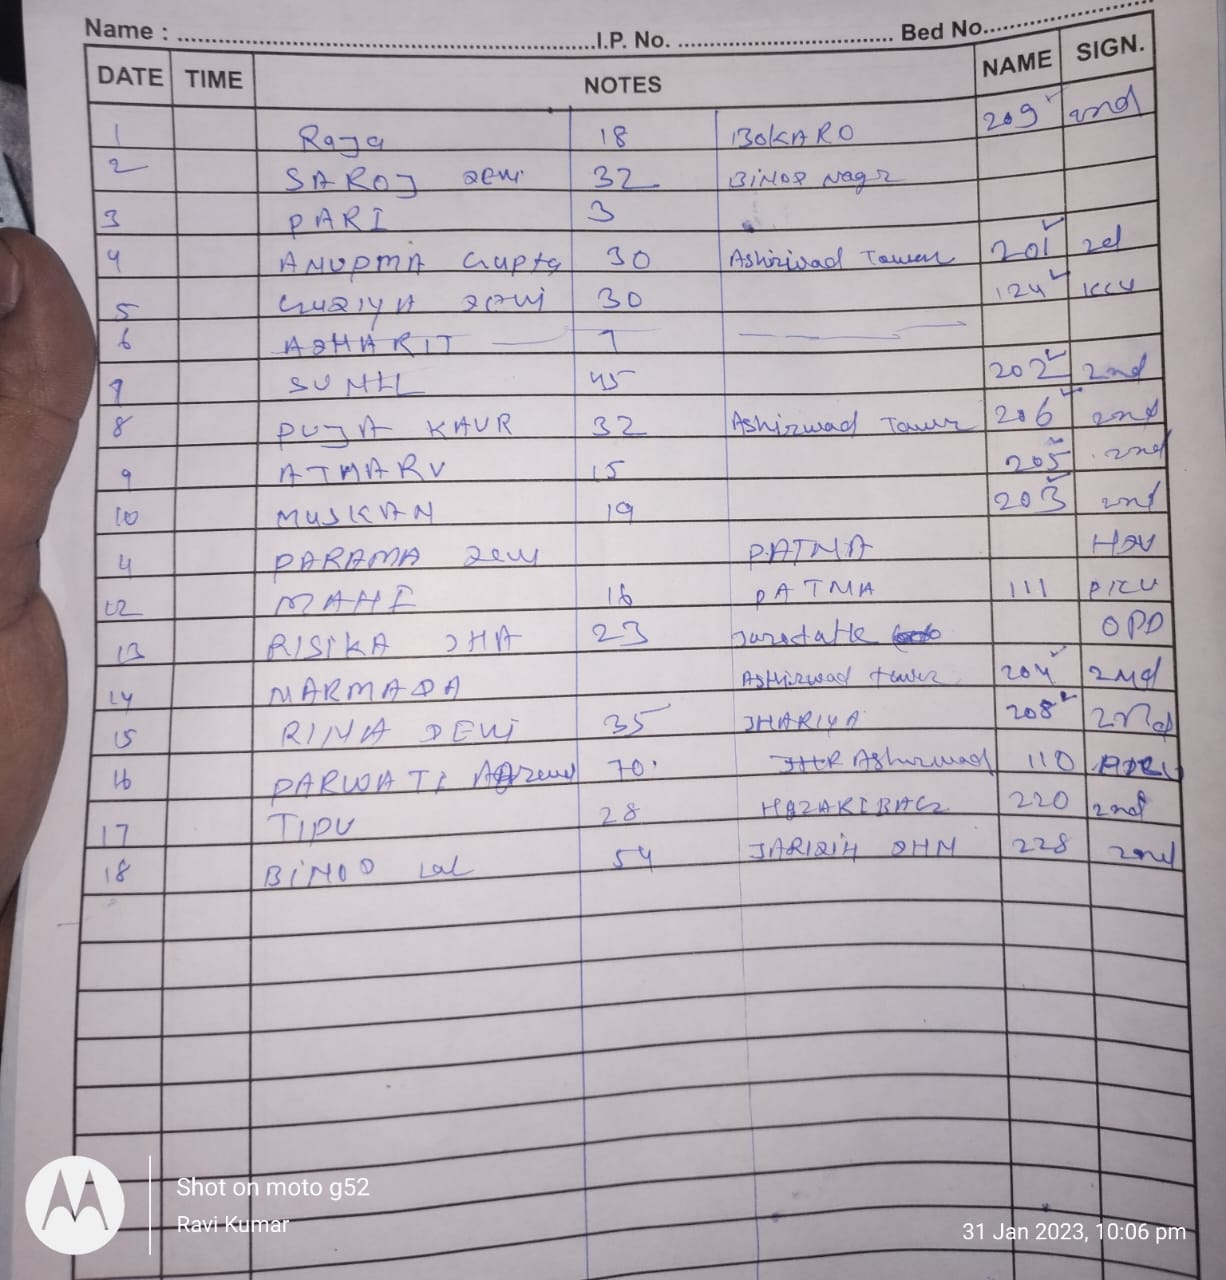 Name : I.P. No. Bed No.
DATE TIME NOTES NAME SIGN.
1 Raja 18 BOKARO 209 2nd
2 SAROJ Devi 32 BiNOD Nagr
3 PARI 3
4 ANUPMA Gupta 30 Ashirwad Tower 201 2d
5 GURIYA Devi 30 124 KCU
6
7 SUNIL 45 202 2nd
8 PUJA KAUR 32 Ashirwad Tower 206 2nd
9 15 205 2nd
10 MUSKAN 19 203 2nd
PARAMA Devi PATNA HDU
12 MAHI 16 PATNA 111 PICU
13 RISIKA JHA 23 OPD
14 NARMADA Ashirwad tower 204 2nd
15 RINA DEVI 35 JHARIYA 208 2nd
16 PARWATI 70 Ashirwad 110
17 TIPU 28 220 2nd
18 BINOD Lal 54 228 2nd
Shot on moto g52
Ravi Kumar
31 Jan 2023, 10:06 pm